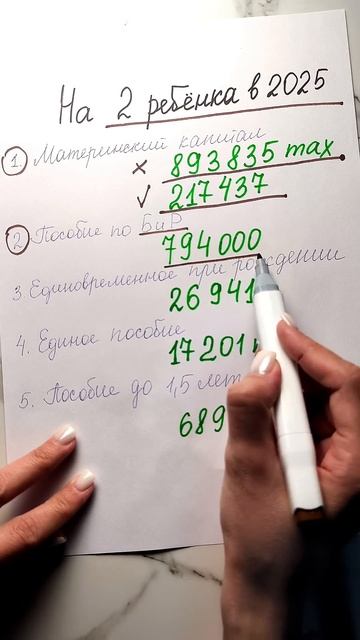 На 2 ребёнка в 2025
1. Материнский капитал
× 893835 max
√ 217437
2 Пособие по БиР
794000
3. Единовременное при рождении
26941
4. Единое пособие
17201
5. Пособие до 1,5 лет
689